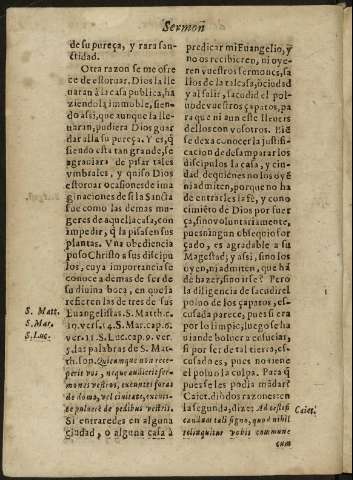 Sermon
de su pureça, y rara san-
ctidad.
Otra razon se me ofre
ce de estoruar. Dios la lle
uaran à la casa publica, ha
ziendola immoble, sien-
do assi, que aunque la lle-
uaran, pudiera Dios guar
dar alla su pureça. Y es, q̃
siendo esta tan grande, se
agrauiara de pisar tales
vmbrales, y quiso Dios
estoruar ocasiones de ima
ginaciones de si la Sancta
fue como las demas mu-
geres de aquella casa, con
impedir, q̃ la pisasen sus
plantas. Vna obediencia
puso Christo a sus discipu
los, cuya importancia se
conoce a demas de ser de
su diuina boca, en que la
refieren las de tres de sus
S. Matt.
S. Mar.
S. Luc.
Euangelistas. S. Matth. c.
10. vers. 14. S. Mar. cap. 6.
ver. 11. S. Luc. cap. 9. ver.
5. las palabras de S. Mat-
th. son. Quicumque non rece-
perit vos, neque audierit ser-
mones vestros, exeuntes foras
de domo, vel ciuitate, excuti-
te puluerẽ de pedibus vestris.
Si entraredes en alguna
ciudad, o alguna casa à
predicar mi Euangelio, y
no os recibieren, ni oye-
ren vuestros sermones, sa
llos de la tal casa, ò ciudad
y al salir, sacudid el pol-
uo de vuestros çapatos, pa
ra que ni aun este lleueis
dellos con vosotros. Biẽ
se dexa conocer la justifi-
cacion de desamparar los
discipulos la casa, y ciu-
dad, de quiẽ nes no los oyẽ
ni admiten, porque no ha
de entrarles la fè, y cono
cimiẽto de Dios por fuer
ça, sino voluntariamente,
pues ningun obsequio for
çado, es agradable a su
Magestad; y assi, sino los
oyen, ni admiten, que hã
de hazer, sino irse? Pero
la diligencia de sacudir el
poluo de los çapatos, es-
cusada parece, pues si era
por lo limpio, luego se ha
uian de boluer a ensuciar,
si por ser de tal tierra, es-
cusado es, pues no tiene
el poluo la culpa. Para q̃
pues se les podia mãdar?
Caiet. diò dos razones: en
la segunda, dize: Ad testifi
Caiet.
candum tali signo, quod nihil
relinquitur vobis commune
cum